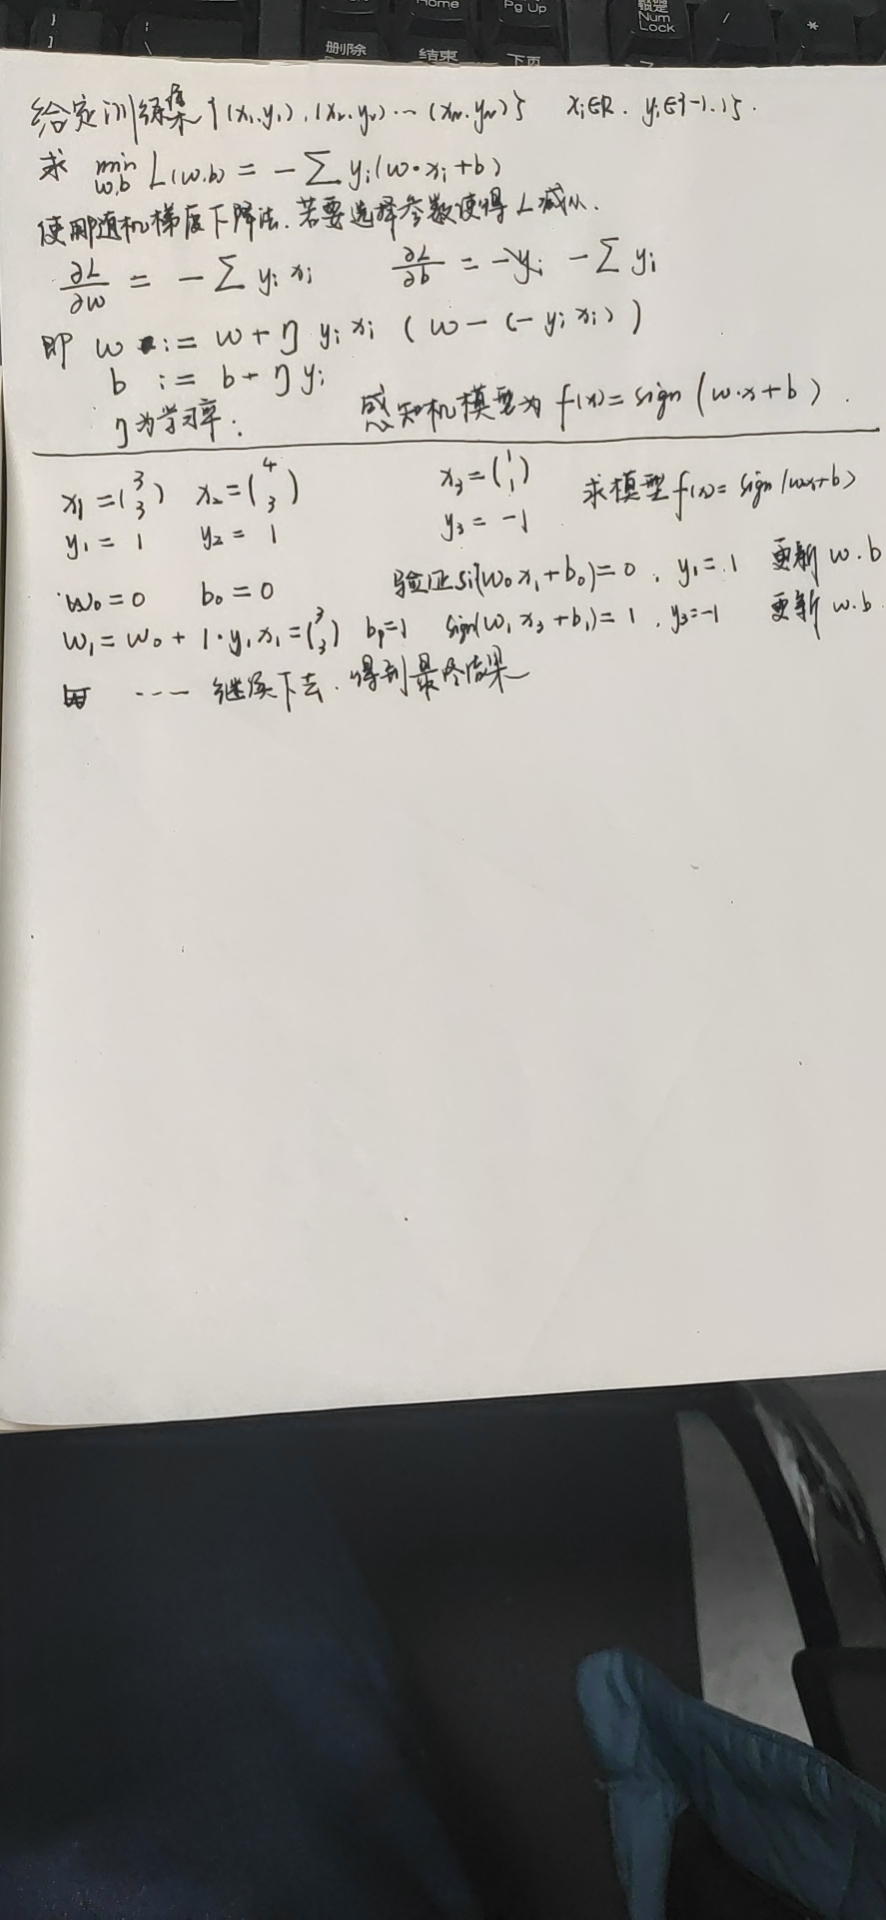 Home
Pg Up
Num
Lock
/
*
]
}
\
删除
结束
下页
给定训练集 {(x₁.y₁),(x₂.y₂)…(xₙ.yₙ)} xᵢ∈R. yᵢ∈{-1.1}.
求 min w,b L(w.b) = - ∑ yᵢ(w•xᵢ+b)
使用随机梯度下降法.若要选择参数使得 L 减小.
∂L/∂w = - ∑ yᵢ xᵢ ∂L/∂b = - ∑ yᵢ
即 w := w + η yᵢ xᵢ ( w - (- yᵢ xᵢ) )
b := b + η yᵢ
η为学习率. 感知机模型为 f(x)= sign (w.x+b) .
x₁=(3 3) x₂=(4 3) x₃=(1 1) 求模型 f(x)= sign(wx+b)
y₁= 1 y₂= 1 y₃= -1
w₀=0 b₀=0 验证si(w₀x₁+b₀)=0 , y₁=1 更新 w.b
w₁=w₀+ 1·y₁x₁=(3 3) b₁=1 sign(w₁x₃+b₁)=1 , y₃=-1 更新 w.b.
---- 继续下去.得到最终结果